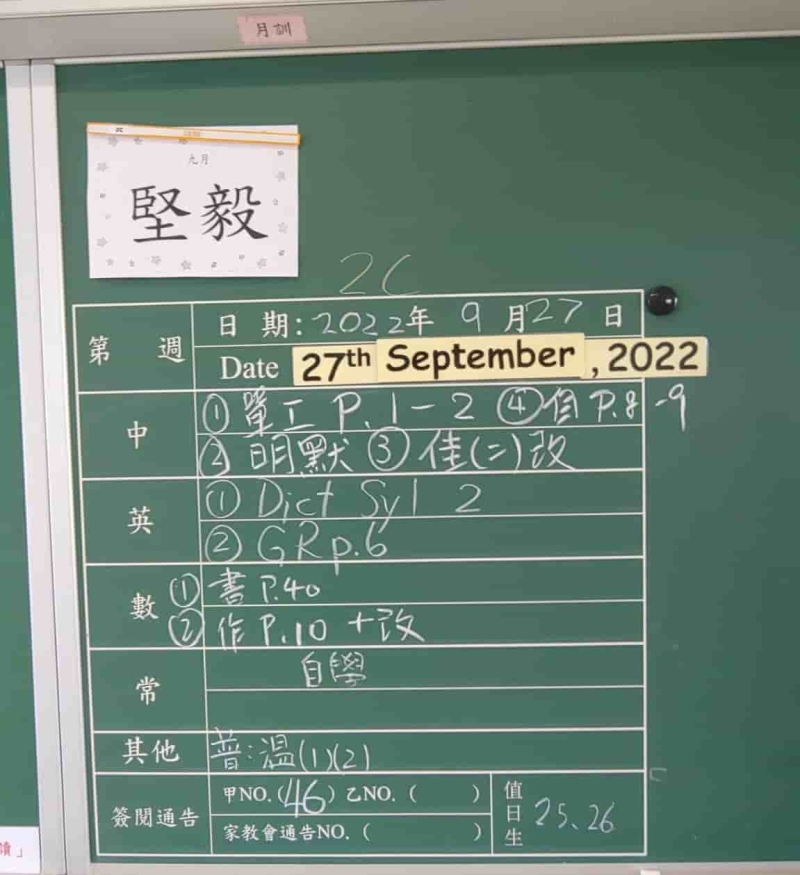 月訓
九月
堅毅
2C
第 週
日 期: 2022年 9 月27 日
Date 27th September, 2022
中
① 單工 P.1-2 ④自 P.8-9
② 明默 ③ 佳(二)改
英
① Dict Syl 2
② GR p.6
數
① 書 P.40
② 作 P.10 +改
常
自學
其他
普:溫(1)(2)
簽閱通告
甲NO.(46) 乙NO. ( )
家教會通告NO. ( )
值日生
25、26
讀」